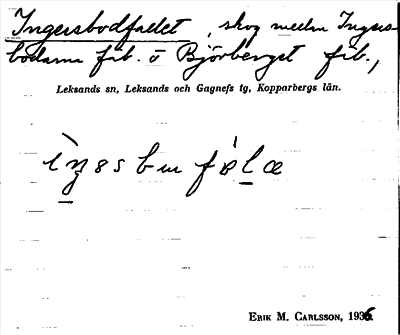 Ingersbodfallet, skog mellan Ingers-
bodarna fäb. o Björberget fäb.,
Leksands sn, Leksands och Gagnefs tg, Kopparbergs län.
ERIK M. CARLSSON, 1936.